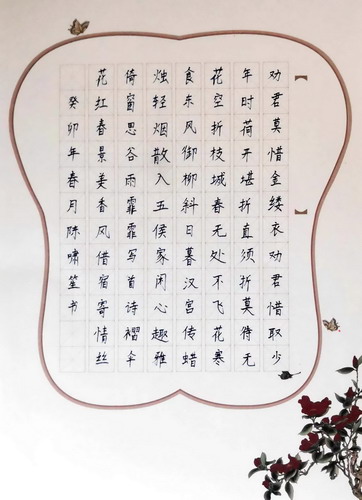 劝君莫惜金缕衣劝君惜取少
年时荷开堪折直须折莫待无
花空折枝城春无处不飞花寒
食东风御柳斜日暮汉宫传蜡
烛轻烟散入五侯家闲心趣雅
倚窗思谷雨霏霏写首诗褶伞
花红春景姜香风借宿寄情丝
癸卯年春月陈啸笙书